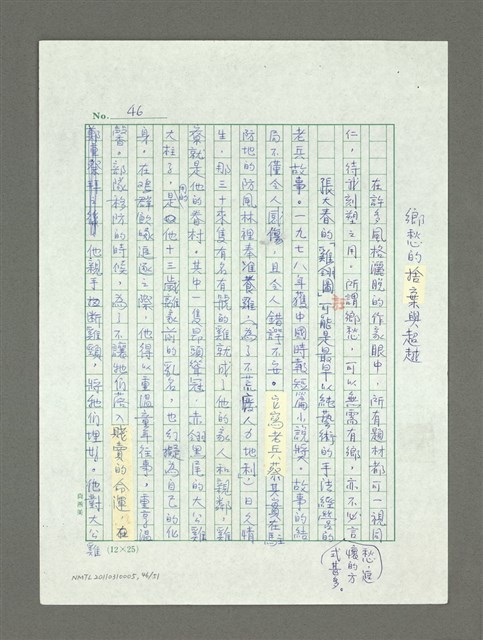 No. 46
鄉愁的捨棄與超越
在許多風格灑脫的作家眼中，所有題材都可一視同
仁，待彫刻塑之用。所謂鄉愁，可以無需有鄉，亦不必言
愁，寄
懷的方
式甚多。
張大春的「雞翎圖」可能是最早以純藝術的手法經營的
老兵故事。一九七八年獲中國時報短篇小說獎。故事的結
局不僅令人圓傷，且令人錯諤不安。它寫老兵蔡其實在駐
防地的防風林裡奉准養雞「為了不荒廢人力地利」日久情
生，那三十來隻有名有號的雞就成了他的家人和親鄰，雞
寮就是他的眷村。其中一隻昂頭聳冠、赤翎黑尾的大公雞
大柱子，是他十三歲離家前的乳名，也幻擬為自己的化
用的
身，在鴻群飲啄追逐之際，他得以重溫童年往事，重享溫
馨。部隊移防的時候，為了不讓牠們落入賤賣的命運，在
他親手扭斷雞頸，將牠們埋掉。他對大公雞
(12×25)
NMTL20110310005，46/51